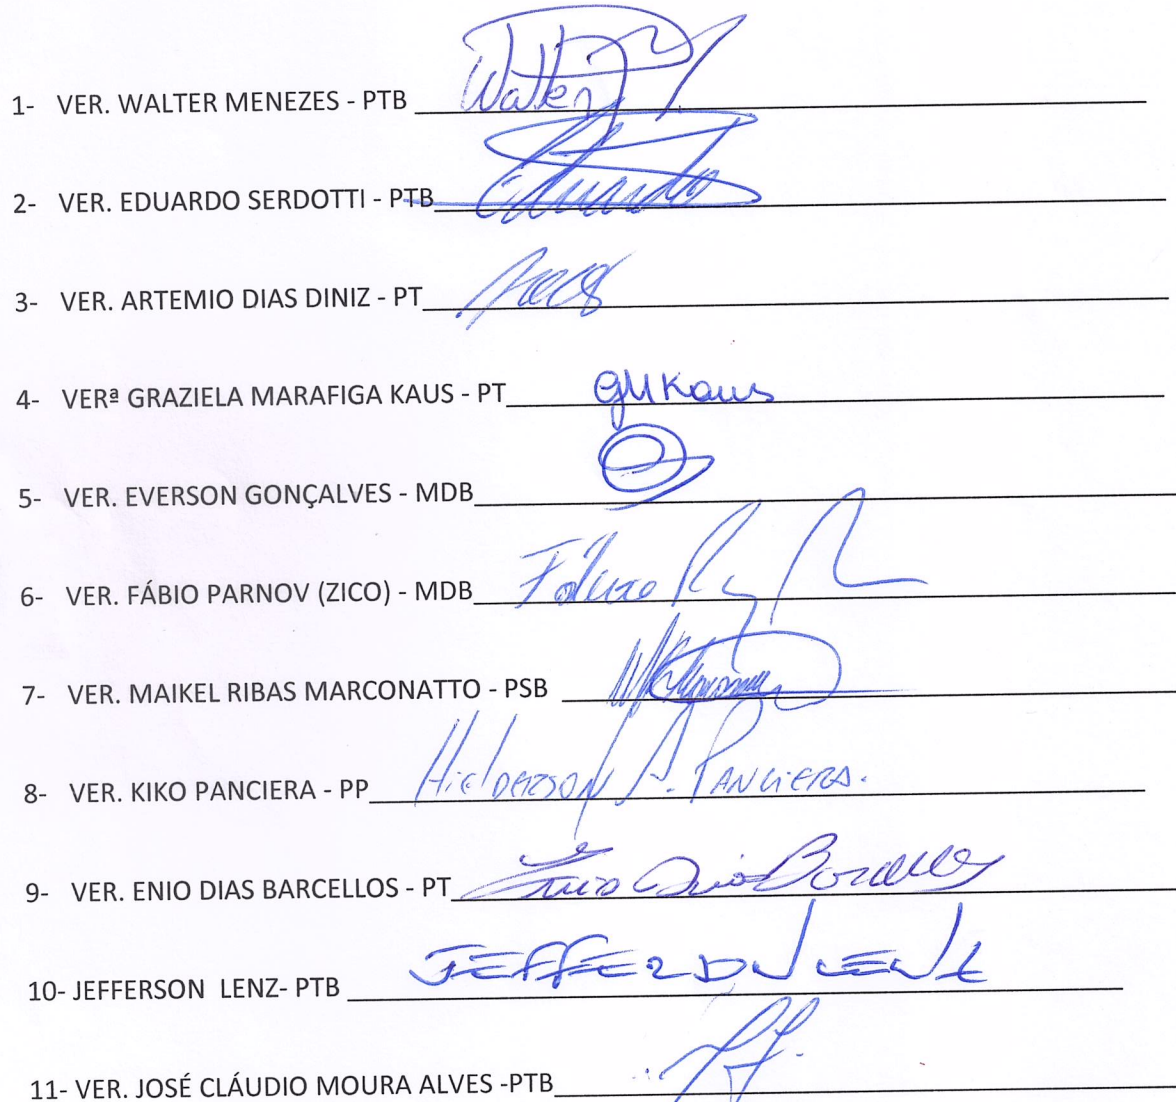 1- VER. WALTER MENEZES - PTB Walter
2- VER. EDUARDO SERDOTTI - PTB Eduardo
3- VER. ARTEMIO DIAS DINIZ - PT
4- VERª GRAZIELA MARAFIGA KAUS - PT GMKaus
5- VER. EVERSON GONÇALVES - MDB
6- VER. FÁBIO PARNOV (ZICO) - MDB
7- VER. MAIKEL RIBAS MARCONATTO - PSB
8- VER. KIKO PANCIERA - PP PANCIERA.
9- VER. ENIO DIAS BARCELLOS - PT Enio Dias Barcellos
10- JEFFERSON LENZ- PTB JEFFERSON LENZ
11- VER. JOSÉ CLÁUDIO MOURA ALVES -PTB